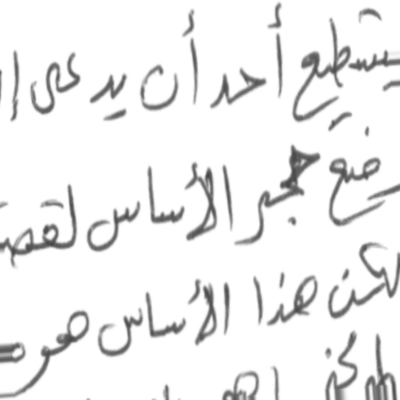 يستطيع أحد أن يدعى
وضع حجر الأساس لقصة
لكن هذا الأساس هو